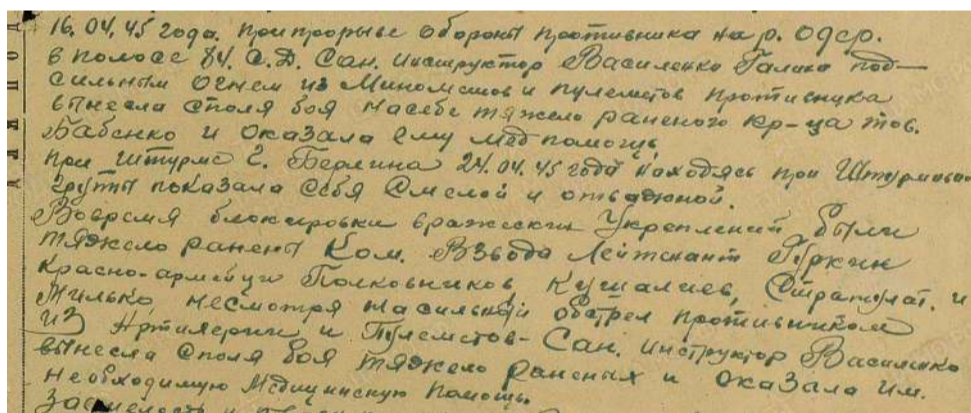 16.04.45 года. при прорыве обороны противника на р. Одер.
в полосе 84. С.Д. Сан. инструктор Василенко Галина под
сильным огнем из Минометов и пулеметов противника
вынесла споля боя насебе тяжело раненого кр-ца тов.
Бабенко и оказала ему мед помощь
при штурме г. Берлина 24.04.45 года находясь при Штурмовой
группы показала себя Смелой и отважной.
Вовремя блокировки вражеских Укреплений были
тяжело ранены Ком. Взвода Лейтенант Пуркин
Красно-армейцы Полковников, Кушалиев, Стратулат. и
Жилько, несмотря насильный обстрел противником
из Артилерии и Пулеметов- Сан. инструктор Василенко
вынесла споля боя тяжело раненых и оказала им.
Необходимую Медицинскую помощь.
За смелость и